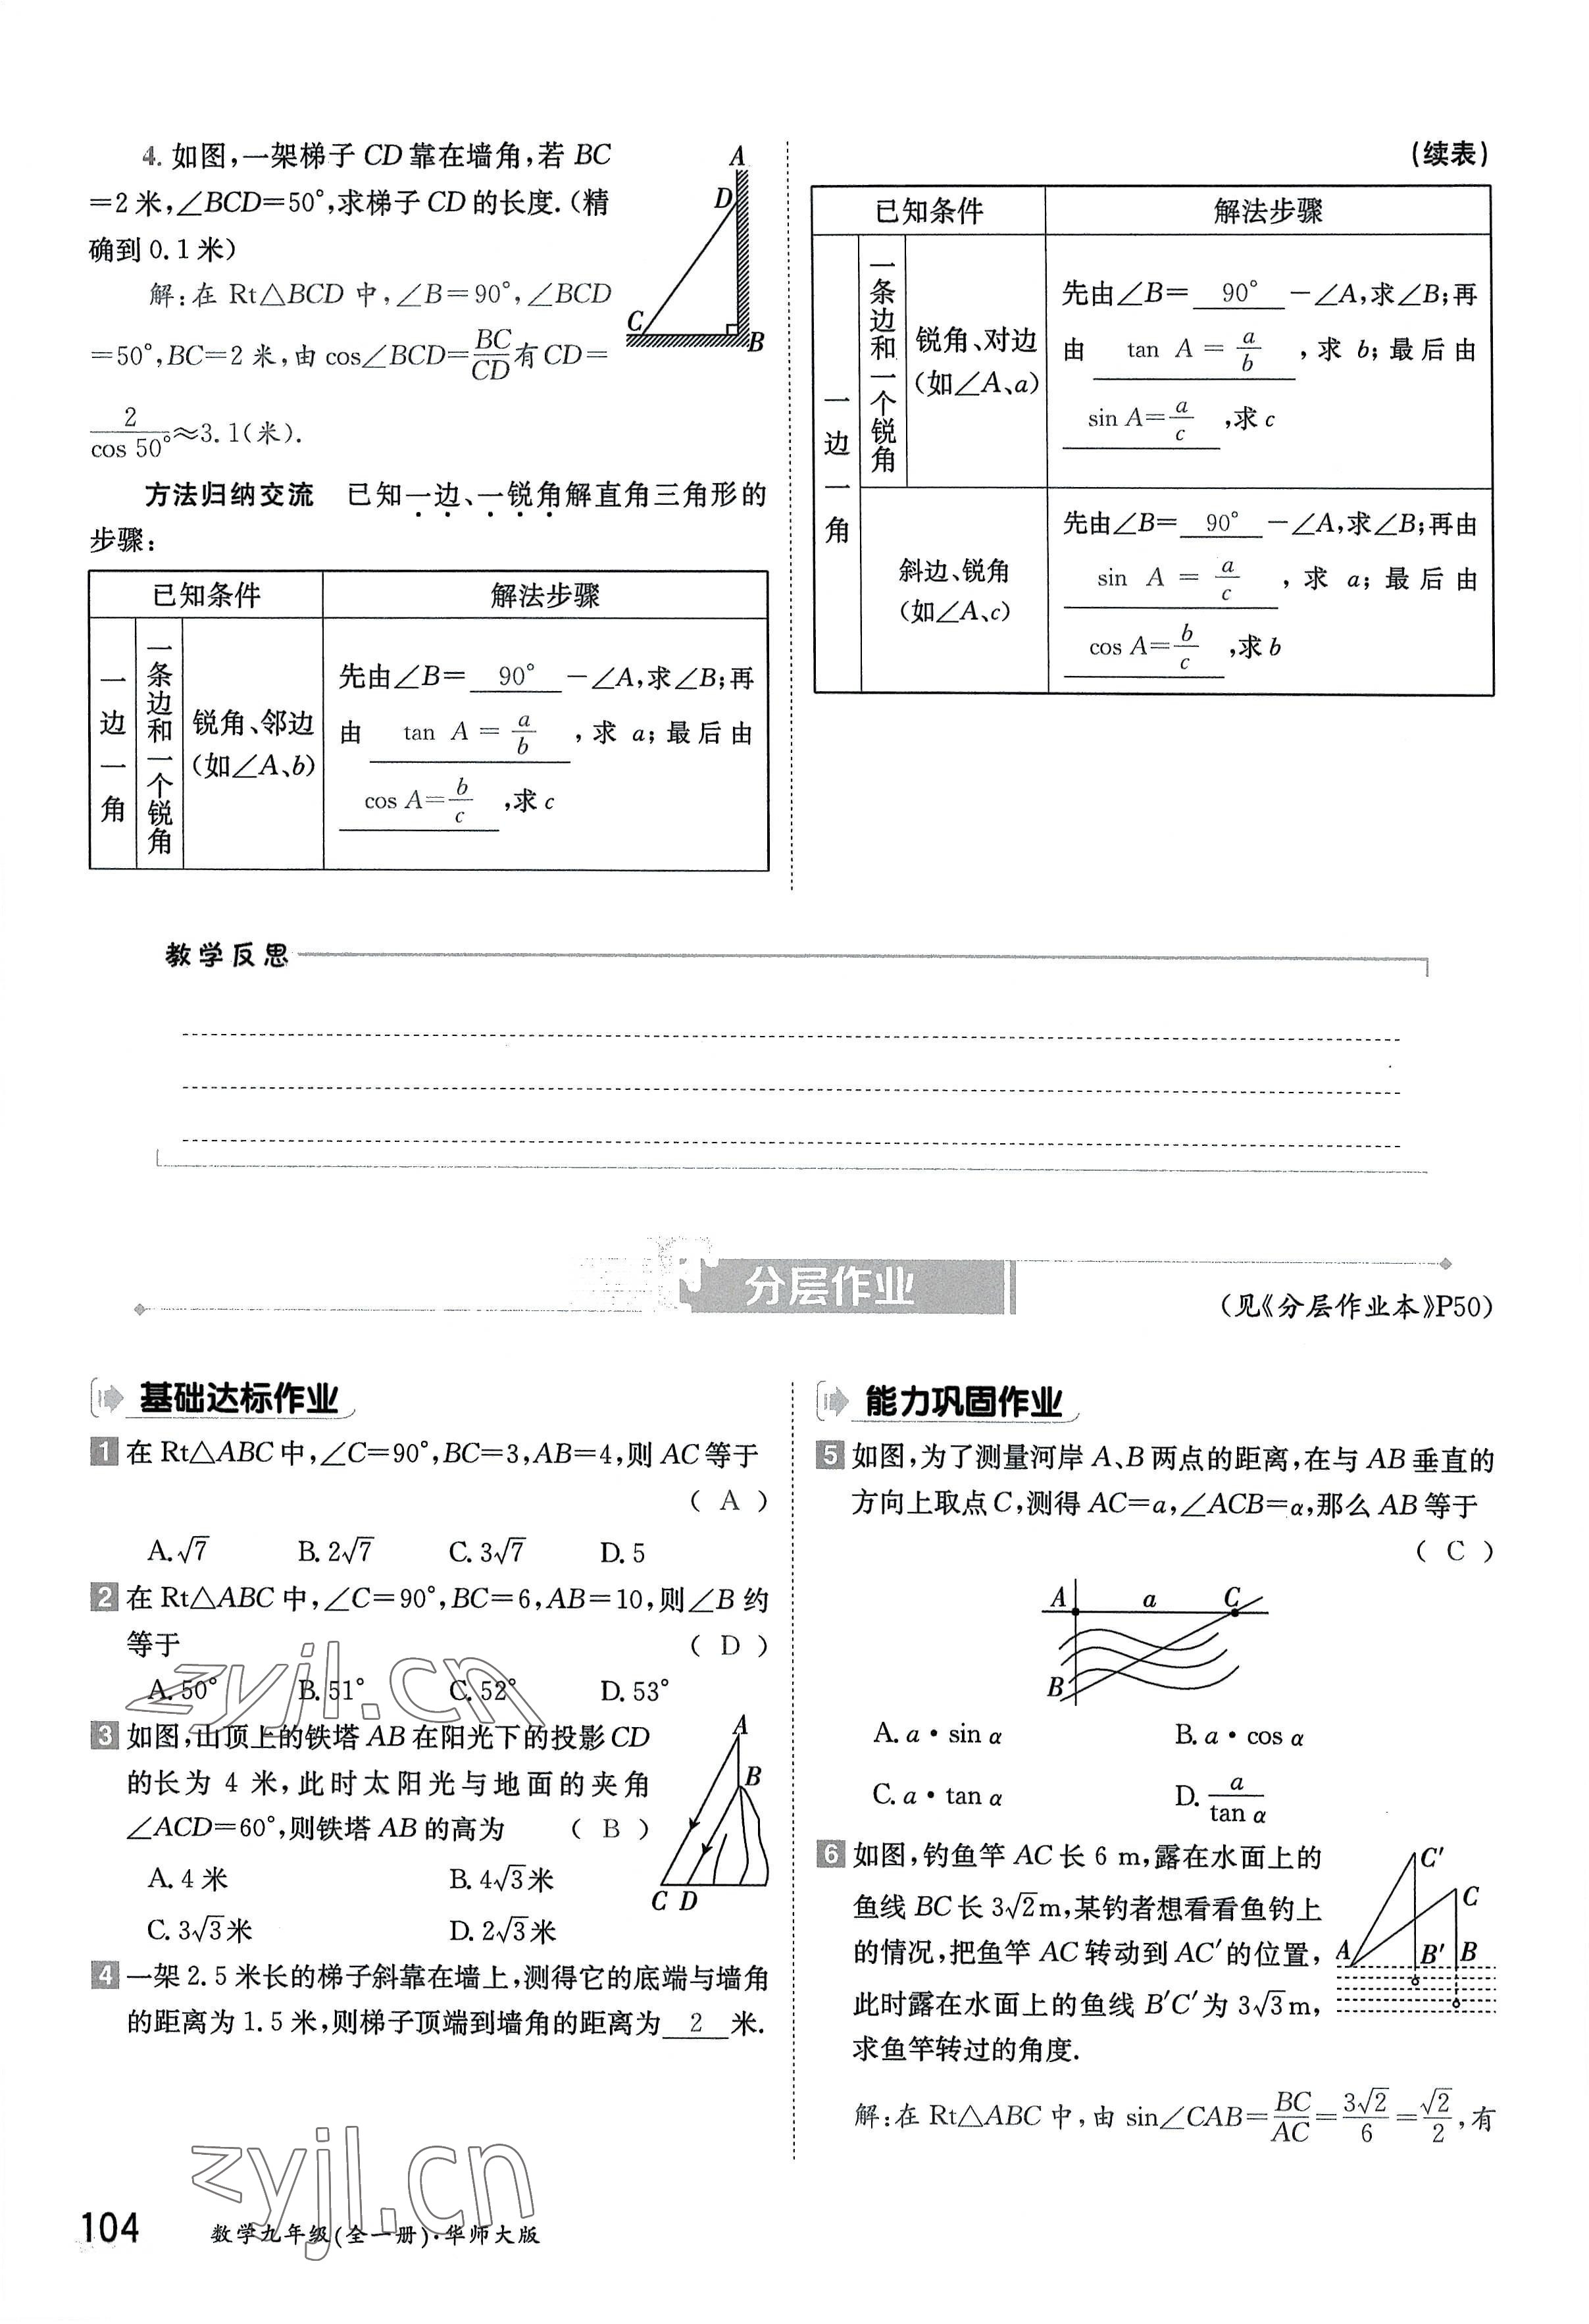 4. 如图,一架梯子 CD 靠在墙角,若 BC
=2 米,∠BCD=50°,求梯子 CD 的长度.(精
确到 0.1 米)
A
D
C
B
解:在 Rt△BCD 中,∠B=90°,∠BCD
=50°,BC=2 米,由 cos∠BCD=BC/CD有 CD=
2/cos 50°≈3.1(米).
方法归纳交流 已知一边、一锐角解直角三角形的
步骤:
已知条件 解法步骤
一边一角
一条边和一个锐角
锐角、邻边
(如∠A、b)
先由∠B= 90° −∠A,求∠B;再
由 tan A = a/b ,求 a;最后由
cos A=b/c ,求 c
(续表)
已知条件 解法步骤
一边一角
一条边和一个锐角
锐角、对边
(如∠A、a)
先由∠B= 90° −∠A,求∠B;再
由 tan A = a/b ,求 b;最后由
sin A=a/c ,求 c
斜边、锐角
(如∠A、c)
先由∠B= 90° −∠A,求∠B;再由
sin A = a/c ,求 a;最后由
cos A=b/c ,求 b
教学反思
分层作业
(见《分层作业本》P50)
基础达标作业
1 在 Rt△ABC 中,∠C=90°,BC=3,AB=4,则 AC 等于
( A )
A.√7 B.2√7 C.3√7 D.5
2 在 Rt△ABC 中,∠C=90°,BC=6,AB=10,则∠B 约
等于 ( D )
A.50° B.51° C.52° D.53°
3 如图,山顶上的铁塔 AB 在阳光下的投影 CD
的长为 4 米,此时太阳光与地面的夹角
∠ACD=60°,则铁塔 AB 的高为 ( B )
A.4 米 B.4√3米
C.3√3米 D.2√3米
A
B
C D
4 一架 2.5 米长的梯子斜靠在墙上,测得它的底端与墙角
的距离为 1.5 米,则梯子顶端到墙角的距离为 2 米.
能力巩固作业
5 如图,为了测量河岸 A、B 两点的距离,在与 AB 垂直的
方向上取点 C,测得 AC=a,∠ACB=α,那么 AB 等于
( C )
A a C
B
A.a·sin α B.a·cos α
C.a·tan α D.a/tan α
6 如图,钓鱼竿 AC 长 6 m,露在水面上的
鱼线 BC 长 3√2m,某钓者想看看鱼钓上
的情况,把鱼竿 AC 转动到 AC′的位置,
此时露在水面上的鱼线 B′C′为 3√3m,
求鱼竿转过的角度.
C′
C
A B′ B
解:在 Rt△ABC 中,由 sin∠CAB=BC/AC=3√2/6=√2/2,有
zyjl.cn
zyjl.cn
104 数学九年级(全一册)·华师大版